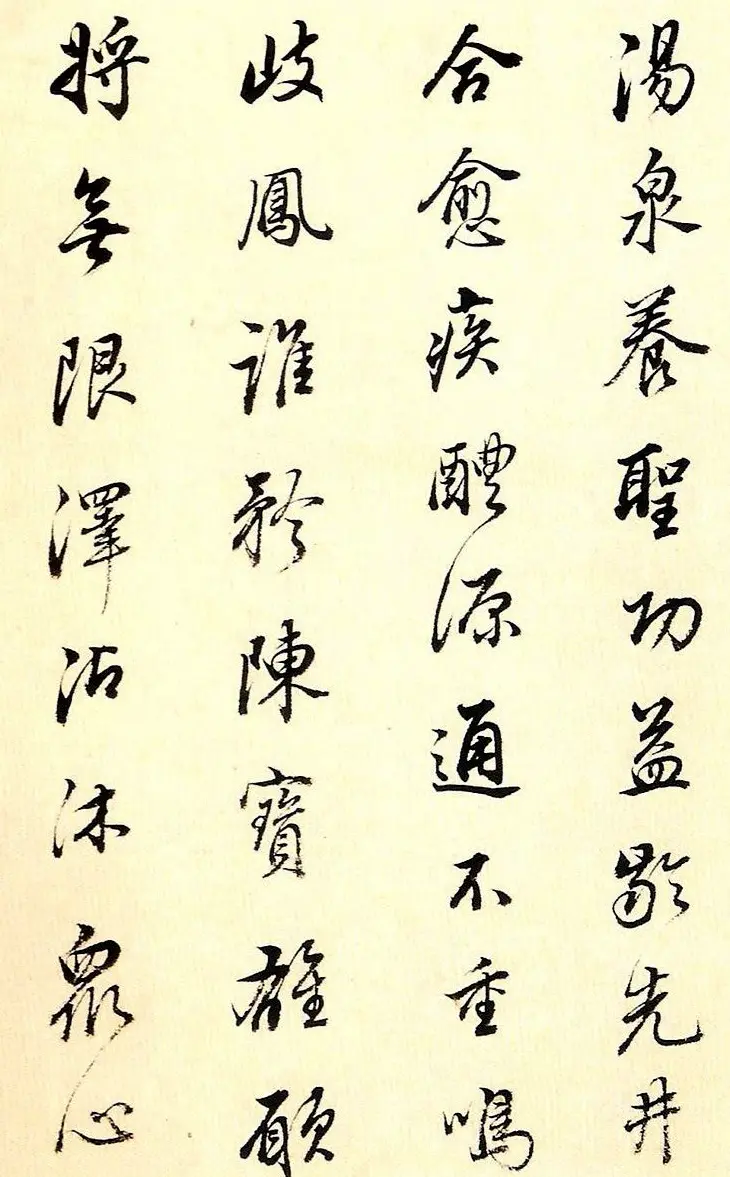 湯泉養聖功益齡先井
合愈疾醴源通不重鳴
岐鳳誰矜陳寶雄願
將無限澤沾沐眾心